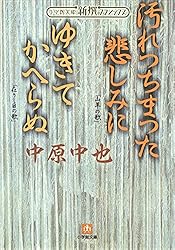 小学館文庫 新撰クラシックス
汚れつちまつた
悲しみに
「山羊の歌」
ゆきて
かへらぬ
「在りし日の歌」
中原中也
小学館文庫